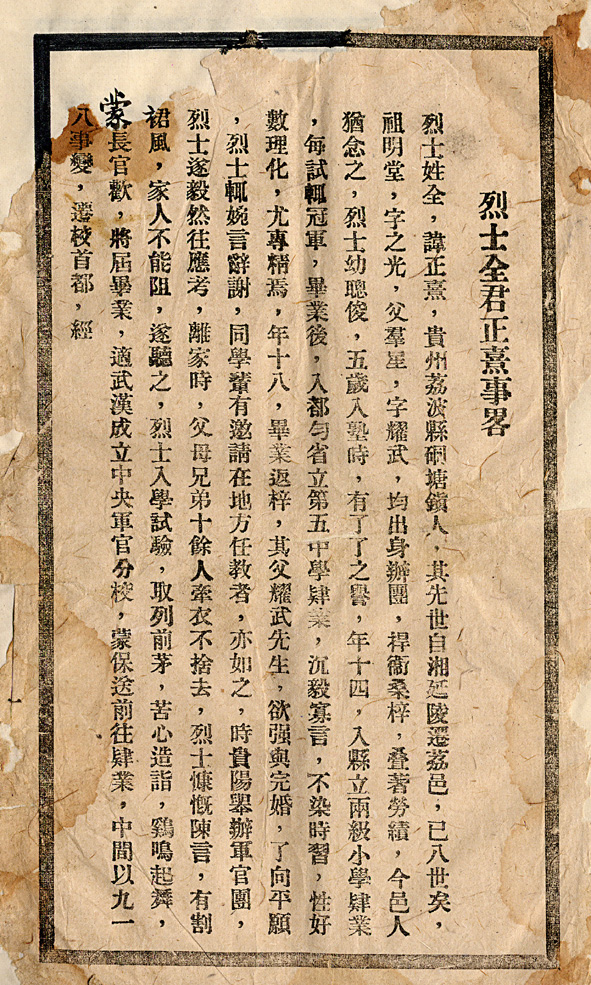 烈士全君正熹事畧
烈士姓全，諱正熹，貴州荔波縣硐塘鎮人，其先世自湘延陵遷荔邑，已八世矣，
祖明堂，字之光，父羣星，字耀武，均出身辦團，捍衞桑梓，叠著勞績，今邑人
猶念之，烈士幼聰俊，五歲入塾時，有了了之譽，年十四，入縣立兩級小學肄業
，每試輒冠軍，畢業後，入都匀省立第五中學肄業，沉毅寡言，不染時習，性好
數理化，尤專精焉，年十八，畢業返梓，其父耀武先生，欲强與完婚，了向平願
，烈士輒婉言辭謝，同學輩有邀請在地方任教者，亦如之，時貴陽舉辦軍官團，
烈士遂毅然往應考，離家時，父母兄弟十餘人牽衣不捨去，烈士慷慨陳言，有割
裙風，家人不能阻，遂聽之，烈士入學試驗，取列前茅，苦心造詣，鷄鳴起舞，
蒙長官歡，將屆畢業，適武漢成立中央軍官分校，蒙保送前往肄業，中間以九一
八事變，遷校首都，經